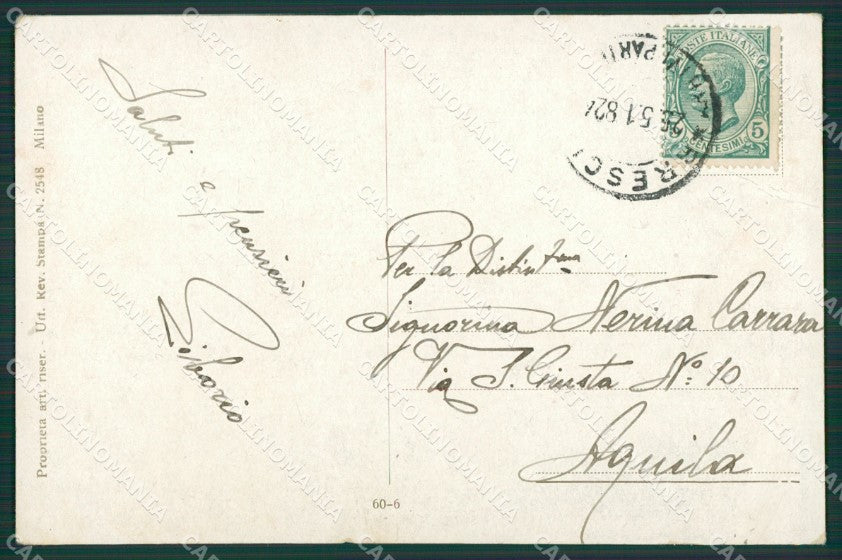 Proprietà art. riser. - Uff. Rev. Stampa N. 2548 Milano
Saluti
e pensieri
Liborio
POSTE ITALIANE
CENTESIMI 5
BRESCI
PARTENZ
25.5.1 82
Per la Distint.ma
Signorina Nerina Carrara
Via S. Giusta Nº 10
Aquila
60-6
CARTOLINOMANIA